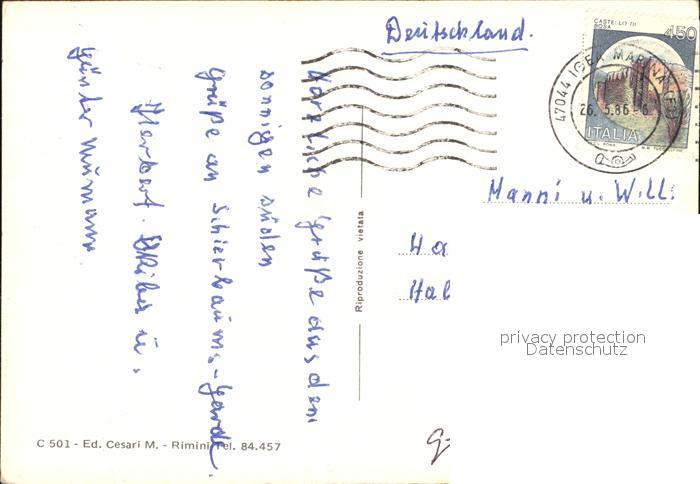 Deutschland.
CASTELLO DI
ROSA
450
47044 IGEA MARINA (FO)
26. 5.86-
ITALIA
Herzliche Grüße aus dem
sonnigen Süden
Grüße an Schierbaums-Garde.
Herbert. u.
Günter
Manni u. Willi
Ha
Hal
Riproduzione vietata
privacy protection
Datenschutz
C 501 - Ed. Cesari M. - Rimini Tel. 84.457